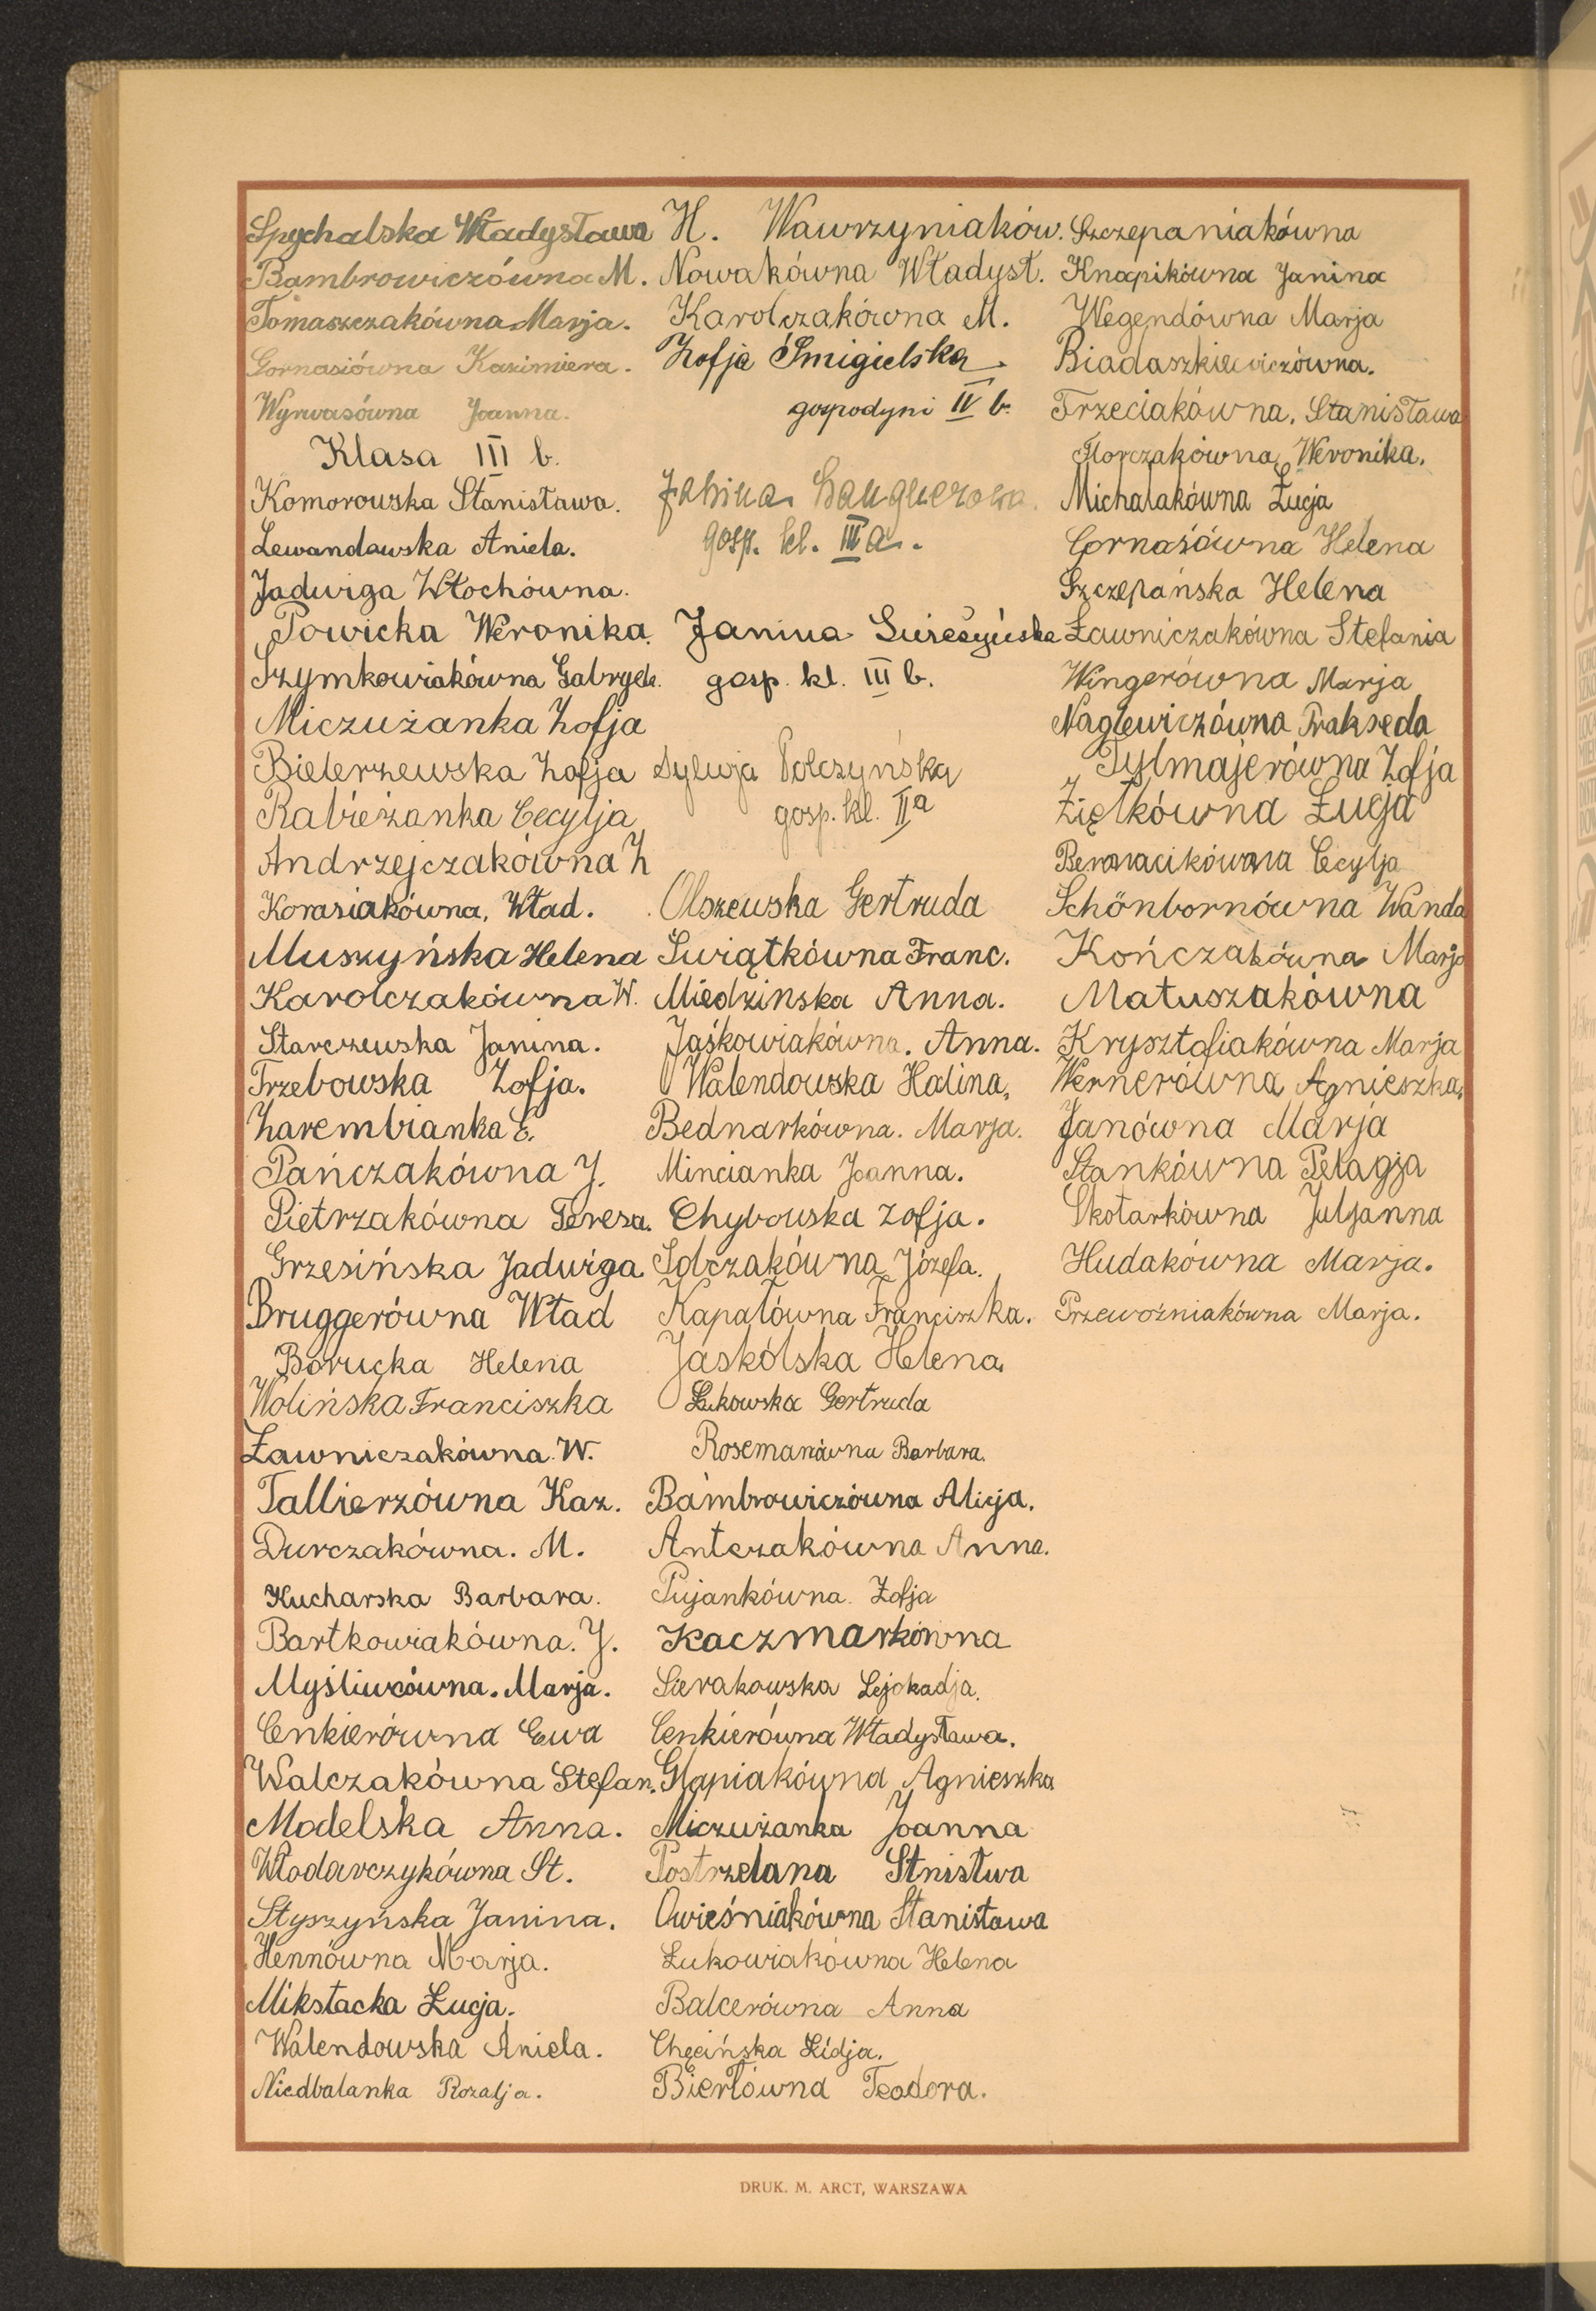 Spychalska Władysława
Bambrowiczówna M.
Tomaszczakówna Marja.
Gornasiówna Kazimiera.
Wyrwasówna Joanna.
Klasa III b.
Komorowska Stanisława.
Lewandowska Aniela.
Jadwiga Włochówna.
Powicka Weronika.
Szymkowiakówna Gabryela.
Miczużanka Zofja
Bielerzewska Zofja
Rabieżanka Cecylja
Andrzejczakówna Z
Korasiakówna, Wład.
Muszyńska Helena
Karolczakówna W.
Starczewska Janina.
Trzebowska Zofja.
Zarembianka C.
Pańczakówna J.
Pietrzakówna Teresa.
Grzesińska Jadwiga.
Bruggerówna Wład
Borucka Helena
Wolińska Franciszka
Ławniczakówna. W.
Tallierzówna Kaz.
Durczakówna. M.
Kucharska Barbara.
Bartkowiakówna. J.
Myśliwcówna. Marja.
Cenkierówna Ewa
Walczakówna Stefan.
Modelska Anna.
Włodarczykówna St.
Styszyńska Janina.
Hennówna Marja.
Mikstacka Łucja.
Walendowska Aniela.
Niedbalanka Rozalja.
H. Wawrzyniaków.
Nowakówna Władysł.
Karolczakówna M.
Zofja Śmigielska
gospodyni IV b.
Janina
gosp. kl. III a.
Janina
gosp. kl. III b.
Sylwja Polczyńska
gosp. kl. II a
Olszewska Gertruda
Świątkówna Franc.
Miedzinska Anna.
Jaśkowiakówna. Anna.
Walendowska Halina,
Bednarkówna. Marja.
Mincianka Joanna.
Chybowska Zofja.
Solczakówna Józefa.
Kapałówna Franciszka.
Jaskólska Helena,
Łukowska Gertruda
Rosemanówna Barbara.
Bambrowiczówna Alicja.
Antczakówna Anna.
Pujankówna. Zofja
Kaczmarkówna
Sierakowska Lejokadja.
Cenkierówna Władysława.
Głapiakówna Agnieszka
Miczużanka Joanna
Postrzelana Stnistwa
Owieśniakówna Stanisława
Łukowiakówna Helena
Balcerówna Anna
Chęcińska Lidja.
Bierłówna Teodora.
Szczepaniakówna
Knapikówna Janina
Wegendówna Marja
Biadaszkiewiczówna.
Trzeciakówna. Stanisława
Florczakówna Weronika.
Michalakówna Łucja
Gornaśówna Helena
Szczepańska Helena
Ławniczakówna Stefania
Wingerówna Marja
Naglewiczówna Prakseda
Tylmajerówna Zofja
Ziętkówna Łucja
Cecylja
Schönbornówna Wanda
Kończakówna Marja
Matuszakówna
Krysztofiakówna Marja
Wernerówna Agnieszka,
Janówna Marja
Stankówna Pelagja
Skotarkówna Juljanna
Hudakówna Marja.
Przewoźniakówna Marja.
DRUK. M. ARCT, WARSZAWA